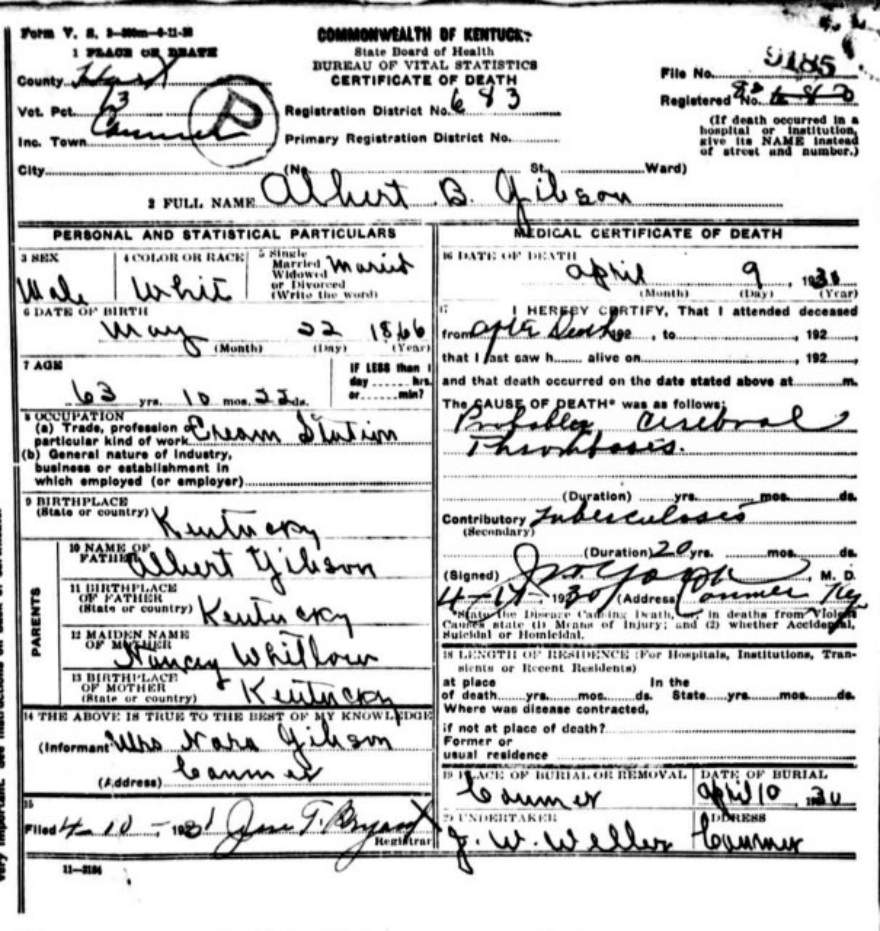 Form V. S.
COMMONWEALTH OF KENTUCKY
State Board of Health
BUREAU OF VITAL STATISTICS
CERTIFICATE OF DEATH
1 PLACE OF DEATH
County Hart
Vot. Pct. 63
Inc. Town Canmer
City
P
Registration District No. 683
Primary Registration District No.
(No. St. Ward)
File No. 9185
Registered No.
(If death occurred in a
hospital or institution,
give its NAME instead
of street and number.)
2 FULL NAME Albert B. Gibson
PERSONAL AND STATISTICAL PARTICULARS
3 SEX
Male
4 COLOR OR RACE
Whit
5 Single
Married
Widowed
or Divorced
(Write the word)
Maried
6 DATE OF BIRTH
May 22 1866
(Month) (Day) (Year)
7 AGE
63 yrs. 10 mos. 22 ds.
IF LESS than 1
day hrs.
or min?
8 OCCUPATION
(a) Trade, profession or
particular kind of work Cream Station
(b) General nature of industry,
business or establishment in
which employed (or employer)
9 BIRTHPLACE
(State or country) Kentucky
PARENTS
10 NAME OF
FATHER Albert Gibson
11 BIRTHPLACE
OF FATHER
(State or country) Kentucky
12 MAIDEN NAME
OF MOTHER
Nancy Whitlow
13 BIRTHPLACE
OF MOTHER
(State or country) Kentucky
14 THE ABOVE IS TRUE TO THE BEST OF MY KNOWLEDGE
(Informant Mrs Nora Gibson
(Address) Canmer
15
Filed 4-10-, 193 Jne T. Bryant
Registrar
11-3184
MEDICAL CERTIFICATE OF DEATH
16 DATE OF DEATH
April 9, 1930
(Month) (Day) (Year)
17 I HEREBY CERTIFY, That I attended deceased
from after Death 192 , to , 192
that I last saw h alive on , 192
and that death occurred on the date stated above at m.
The CAUSE OF DEATH* was as follows:
Probabley cerebral
Thrombosis.
(Duration) yrs. mos. ds.
Contributory Tuberculosis
(Secondary)
(Duration) 20 yrs. mos. ds.
(Signed) , M. D.
1930 (Address) Canmer Ky
*State the Disease Causing Death, or, in deaths from Violent
Causes state (1) Means of Injury; and (2) whether Accidental,
Suicidal or Homicidal.
18 LENGTH OF RESIDENCE (For Hospitals, Institutions, Tran-
sients or Recent Residents)
at place In the
of death yrs. mos. ds. State yrs. mos. ds.
Where was disease contracted,
if not at place of death?
Former or
usual residence
19 PLACE OF BURIAL OR REMOVAL
Canmer
DATE OF BURIAL
April 10 1930
20 UNDERTAKER
J. W. Weller
ADDRESS
Canmer